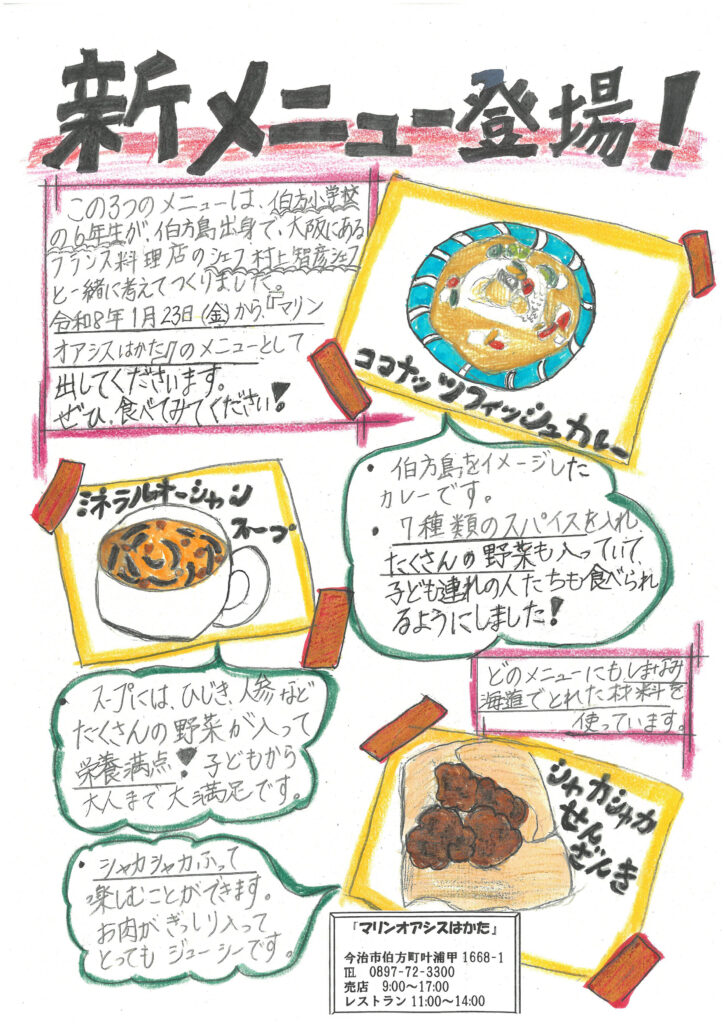 新メニュー登場!
この3つのメニューは、伯方小学校
の6年生が、伯方島出身で、大阪にある
フランス料理店のシェフ村上智彦シェフ
と一緒に考えてつくりました。
令和8年1月23日(金)から、『マリン
オアシスはかた』のメニューとして
出してくださいます。
ぜひ、食べてみてください!
ココナッツフィッシュカレー
・伯方島をイメージした
カレーです。
・7種類のスパイスを入れ、
たくさんの野菜も入っていて、
子ども連れの人たちも食べられ
るようにしました!
ミネラルオーシャン
スープ
・スープには、ひじき、人参など
たくさんの野菜が入って
栄養満点!子どもから
大人まで大満足です。
どのメニューにもしまなみ
海道でとれた材料を
使っています。
シャカシャカ
せんざんき
・シャカシャカふって
楽しむことができます。
お肉がぎっしり入って
とってもジューシーです。
「マリンオアシスはかた」
今治市伯方町叶浦甲1668-1
℡ 0897-72-3300
売店 9:00~17:00
レストラン 11:00~14:00